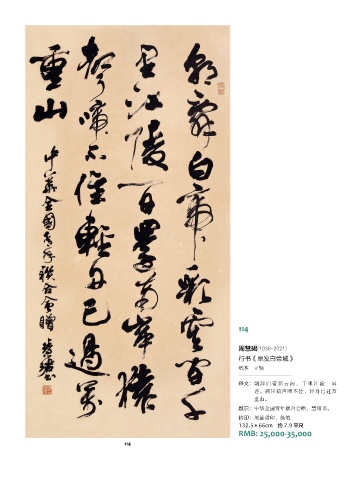 朝辞白帝彩雲間千
里江陵一日還兩岸猿
聲啼不住輕舟已過萬
重山
中华全国青年联合会赠 慧珺书
114
周慧珺(1939-2021)
行书《早发白帝城》
纸本 立轴
释文：朝辞白帝彩云间，千里江陵一日
还。两岸猿声啼不住，轻舟已过万
重山。
款识：中华全国青年联合会赠，慧珺书。
钤印：周慧珺印
132.5×66cm 约7.9平尺
RMB: 25,000-35,000
114